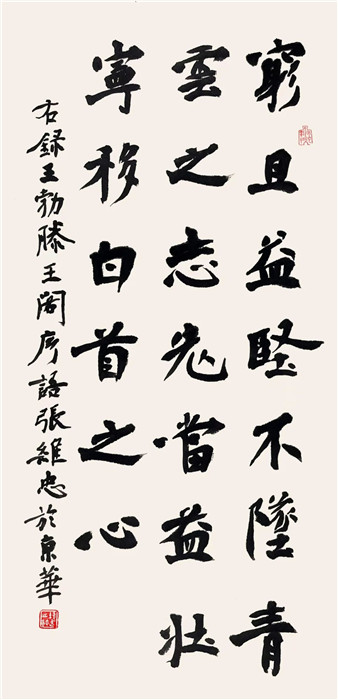 窮且益堅不墜青
雲之志老當益壯
寧移白首之心
右録王勃滕王閣序語張維忠於京華